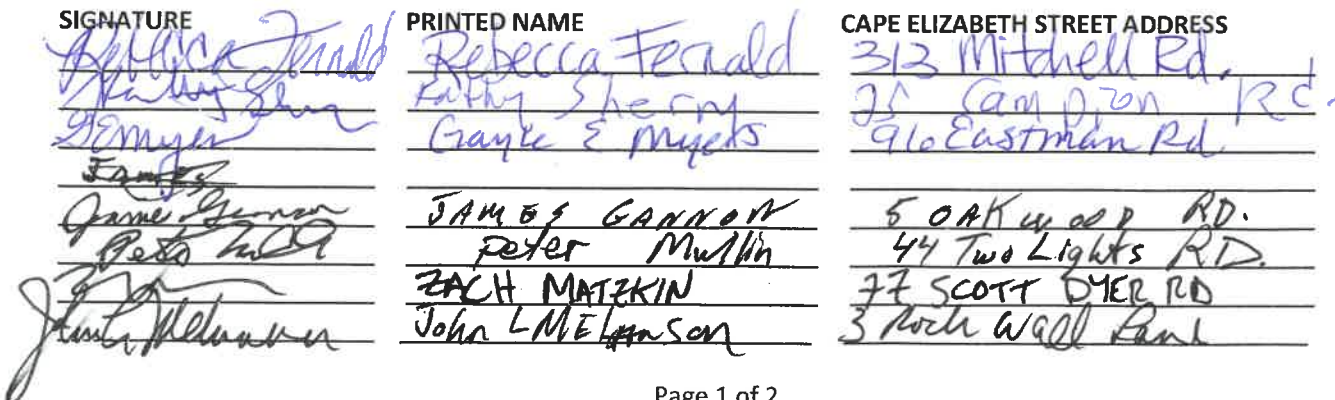 SIGNATURE PRINTED NAME CAPE ELIZABETH STREET ADDRESS
Rebecca Fernald Rebecca Fernald 313 Mitchell Rd.
Kathy Kathy Sherry 25 Campion Rd.
GEMyers Gayle E Myers 96 Eastman Rd
James
James Gannon JAMES GANNON 5 OAKWOOD RD.
Peter Mullin Peter Mullin 44 Two Lights RD.
ZACH MATZKIN 77 SCOTT DYER RD
John L Melanson John L MElanson 3 Rock Wall Lane
Page 1 of 2